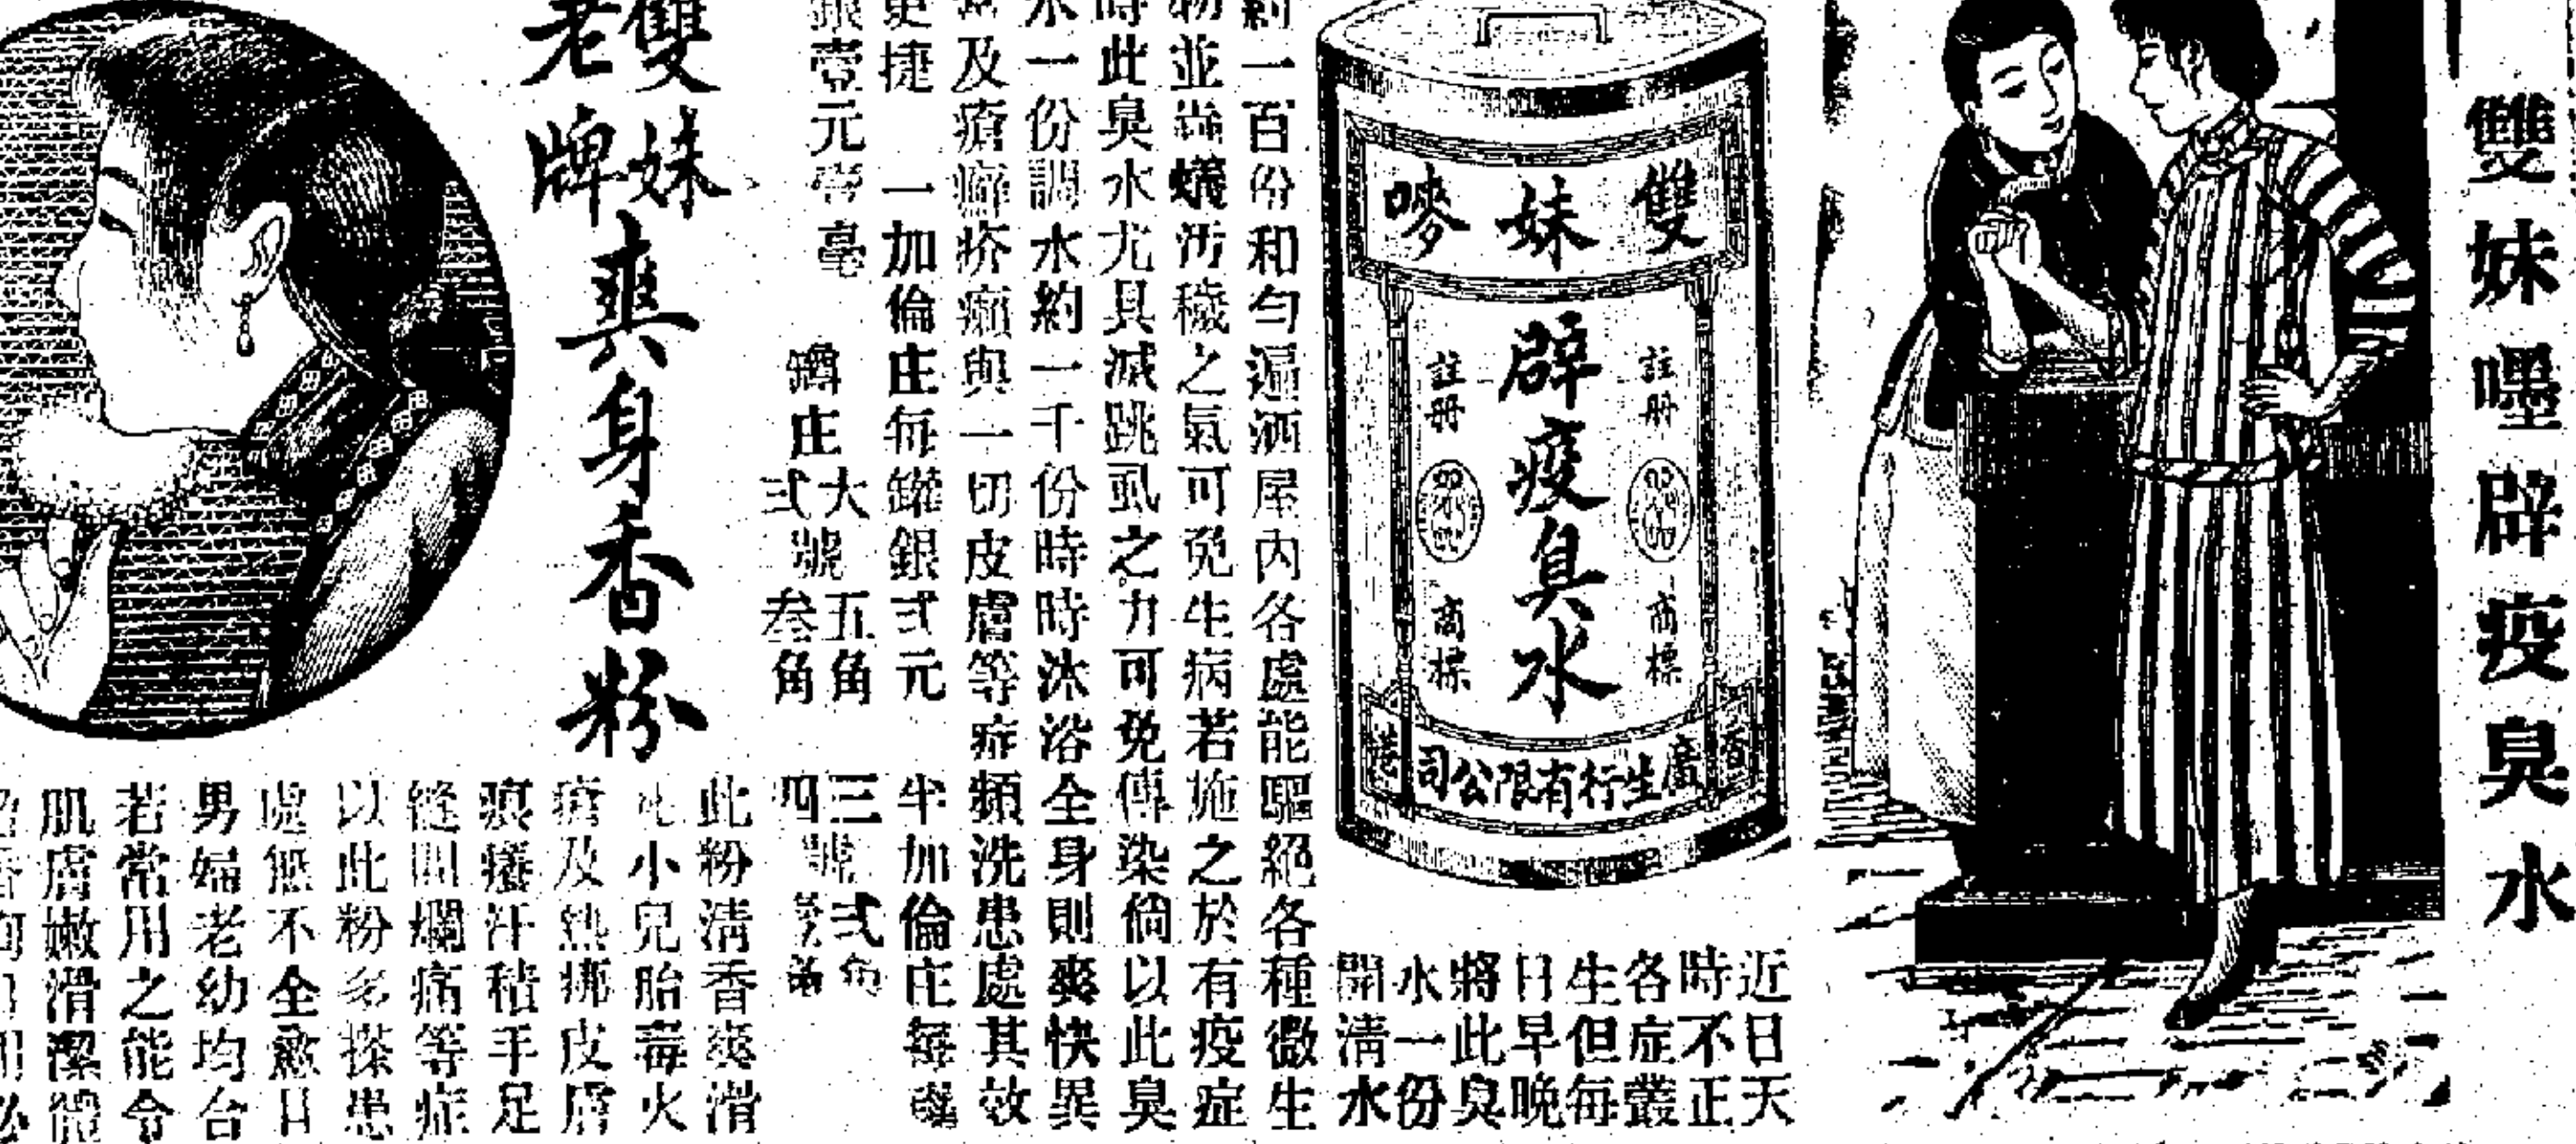 雙妹嘜辟疫臭水
雙妹嘜
辟疫臭水
註册商標
註册商標
香港
廣生行有限公司
近日天
時不正
各症叢
生但每
日早晚
將此臭
水一份
開淸水
約一百份和勻逼洒屋內各處能驅絕各種微生
物並蟲蟻汚穢之氣可免生病若施之於有疫症
時此臭水尤具減跳虱之力可免傳染倘以此臭
水一份調水約一千份時時沐浴全身則爽快異
常及瘡癬疥癩與一切皮膚等症頻洗患處其效
更捷 一加倫庄每罐銀弍元 半加倫庄每罐
銀壹元壹毫 罇庄大號五角 弍號叁角 三號弍角 四號
雙妹老牌爽身香粉
此粉淸香爽滑
小兒胎毒火
瘡及熱痱皮膚
痕癢汗積手足
縫間爛痛等症
以此粉多搽患
處無不全愈且
男婦老幼均合
若常用之能令
肌膚嫩滑潔體